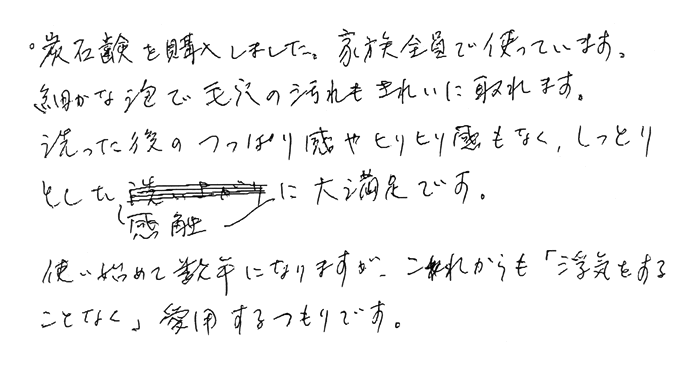 。炭石鹸を購入しました。家族全員で使っています。
細かな泡で毛穴の汚れもきれいに取れます。
洗った後のつっぱり感やヒリヒリ感もなく、しっとり
とした洗い上がりに大満足です。
感触
使い始めて数年になりますが、これからも「浮気をする
ことなく」愛用するつもりです。